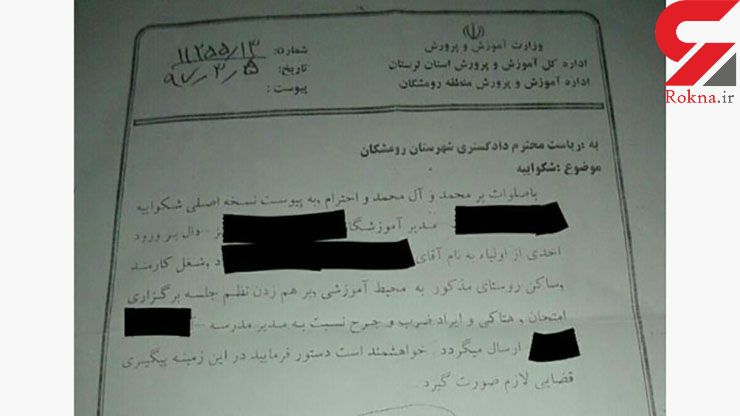 Rokna.ir
وزارت آموزش و پرورش
اداره کل آموزش و پرورش استان لرستان
اداره آموزش و پرورش منطقه رومشکان
شماره: ۱۱۲۵۵/۱۳
تاریخ: ۹۷/۳/۵
پیوست:
به :ریاست محترم دادگستری شهرستان رومشکان
موضوع :شکواییه
باصلوات بر محمد و آل محمد و احترام ,به پیوست نسخه اصلی شکواییه
مدیر آموزشگا دال بر ورود
احدی از اولیاء به نام آقای د ,شغل کارمند
,ساکن روستای مذکور به محیط آموزشی,بر هم زدن نظم جلسه برگزاری
امتحان , هتاکی و ایراد ضرب و جرح نسبت به مدیر مدرسه
ارسال میگردد . خواهشمند است دستور فرمایید در این زمینه پیگیری
قضایی لازم صورت گیرد .